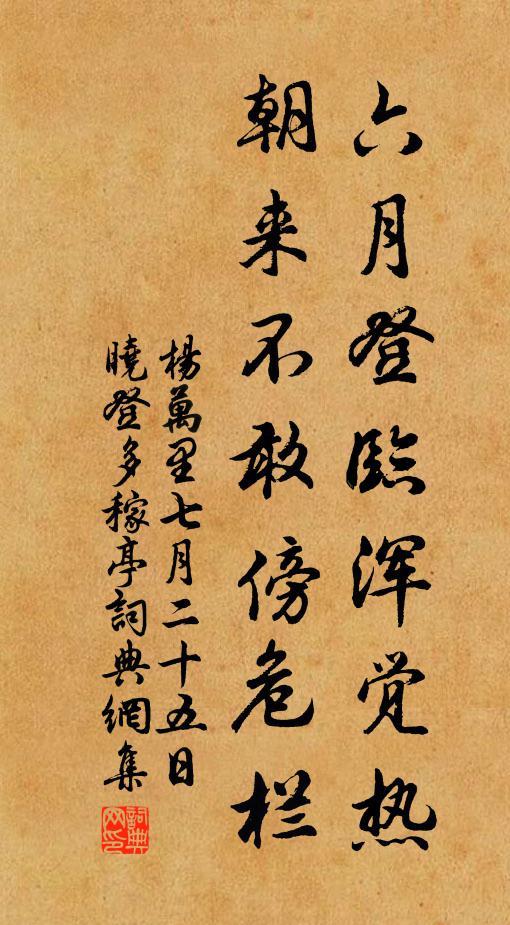 六月登临浑觉热
朝来不敢傍危栏
楊萬里七月二十五日
曉登多稼亭詞典網集
詞典网印